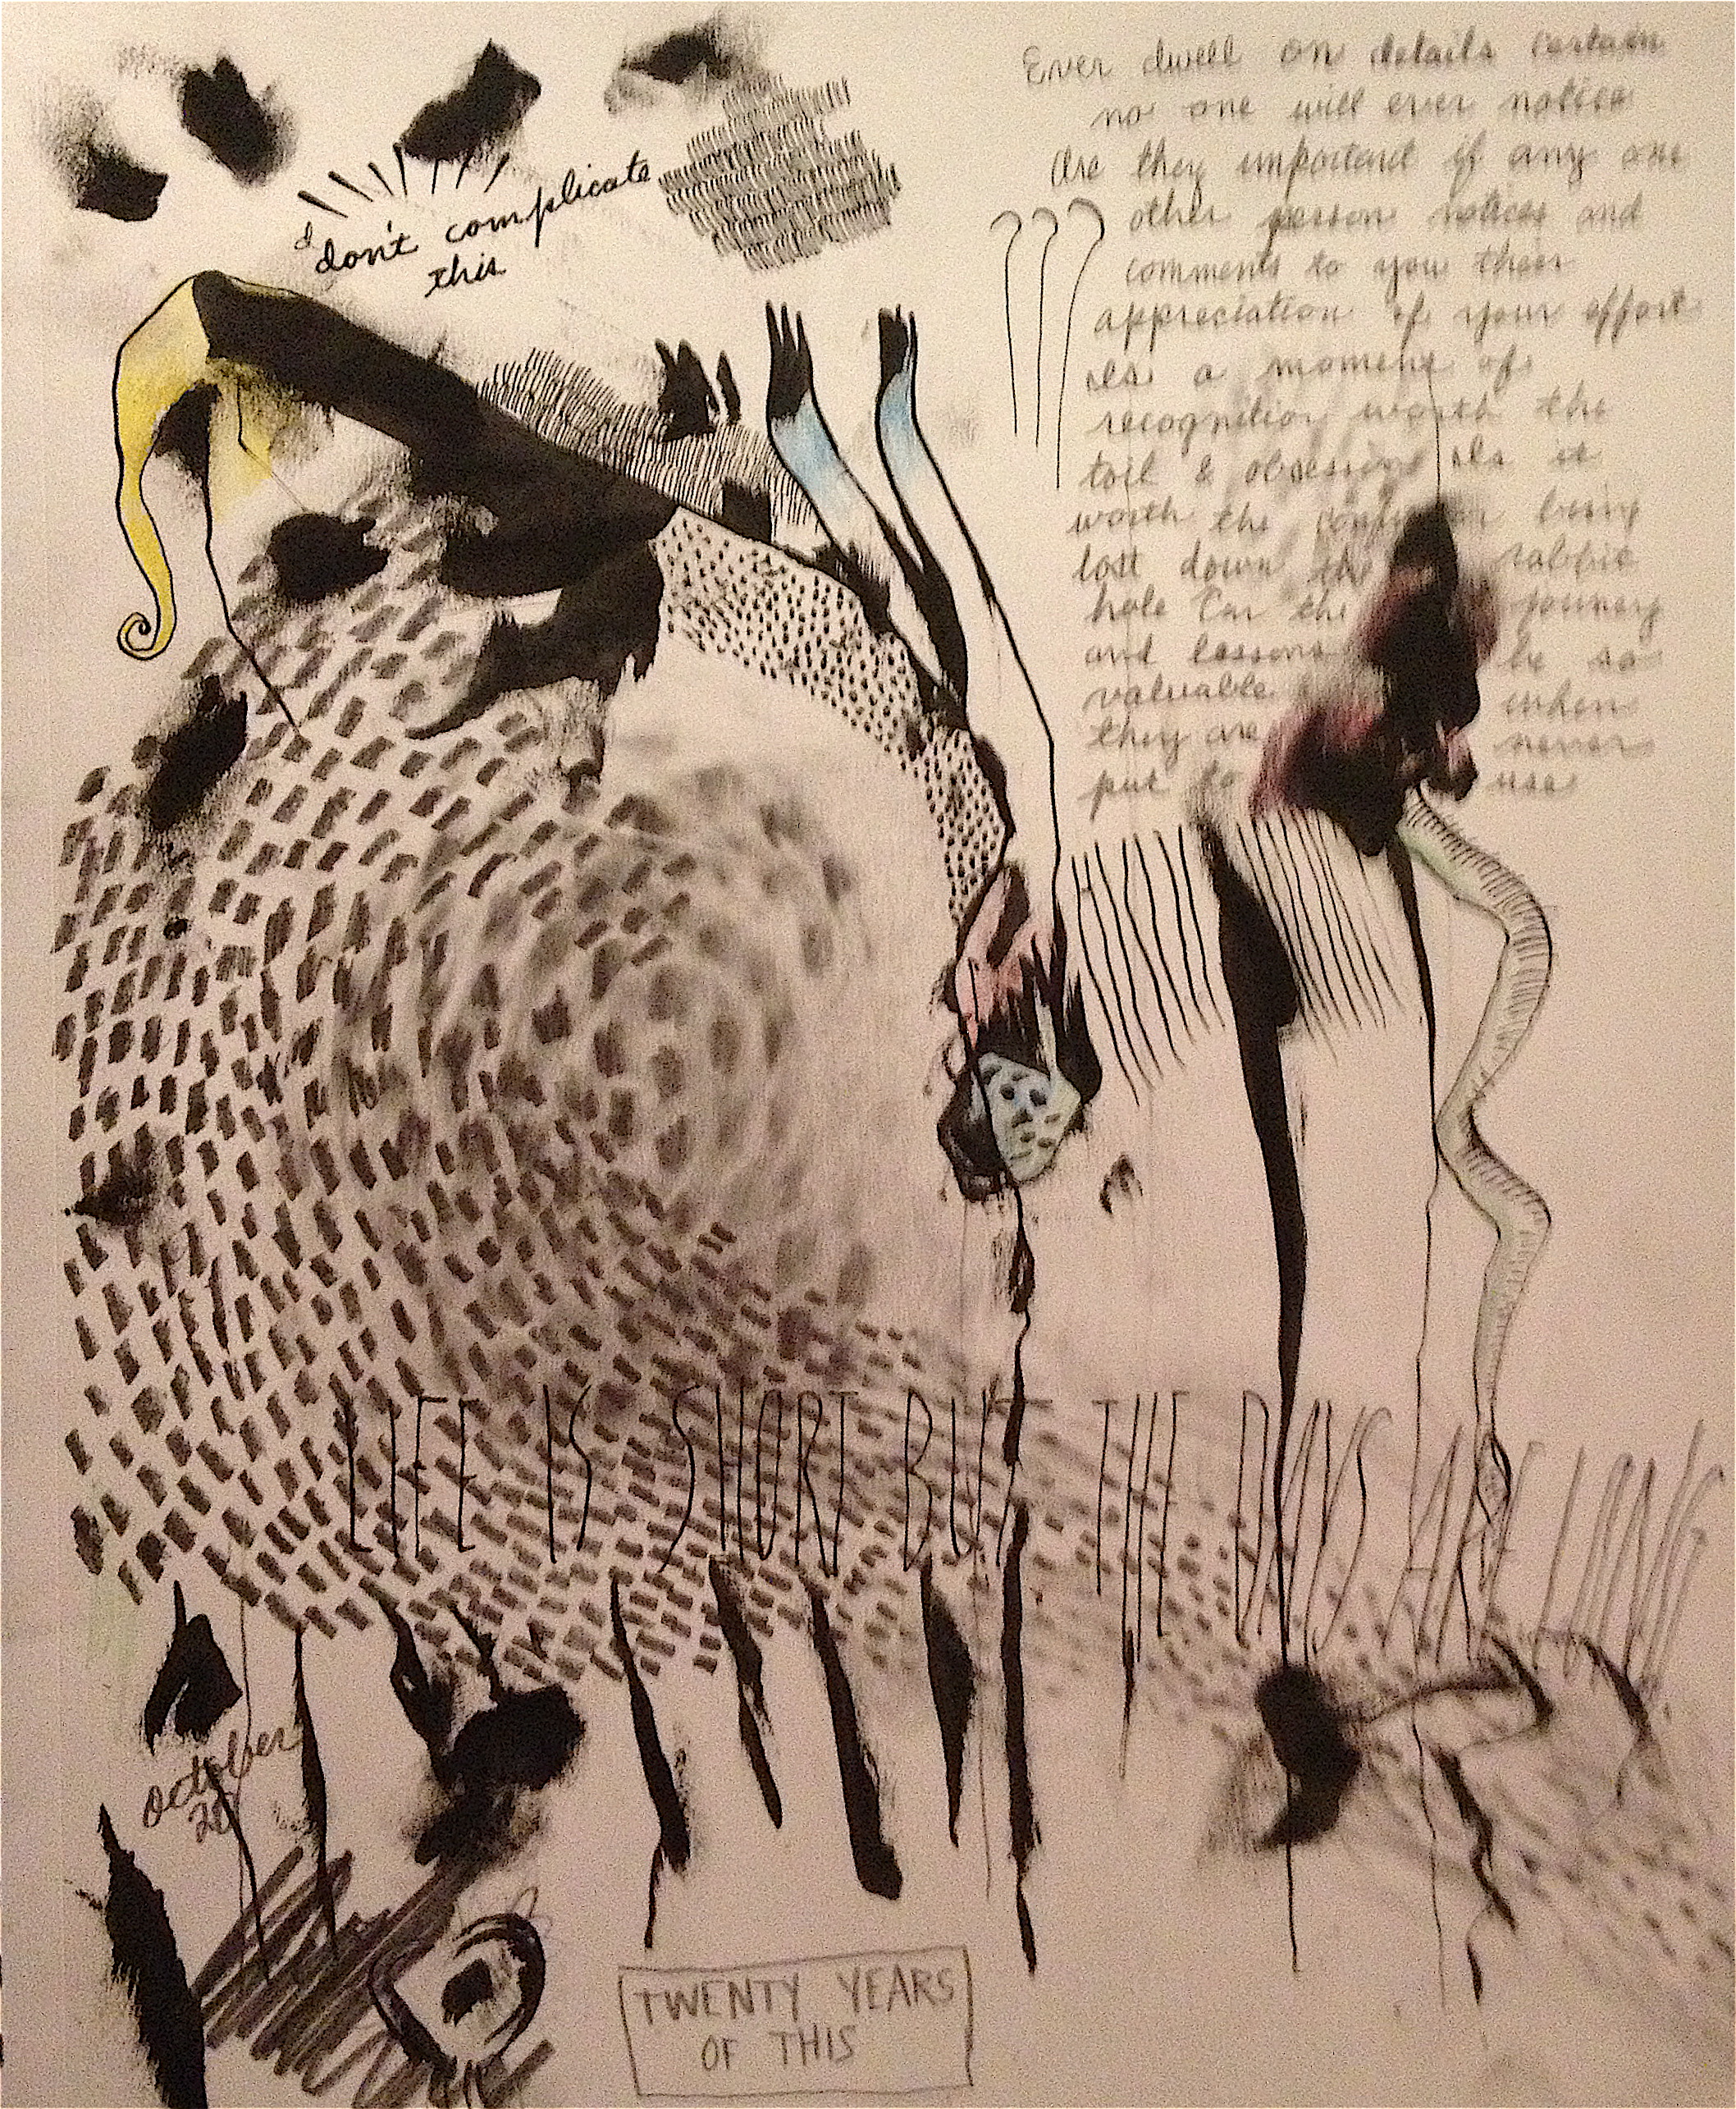 Ever dwell on details certain
no one will ever notice
Are they important if any one
other person notices and
comments to you their
appreciation of your effort
Is a moment of
recognition worth the
toil & obsessing Is it
worth the being
lost down the rabbit
hole Can the journey
and lessons be so
valuable when
they are never
put to use
I don't complicate
this
LIFE IS SHORT BUT THE DAYS ARE LONG
October
20
TWENTY YEARS
OF THIS